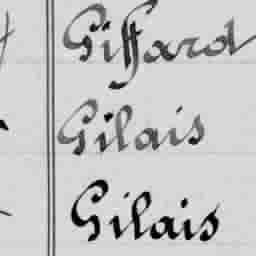 Giffard
Gilais
Gilais